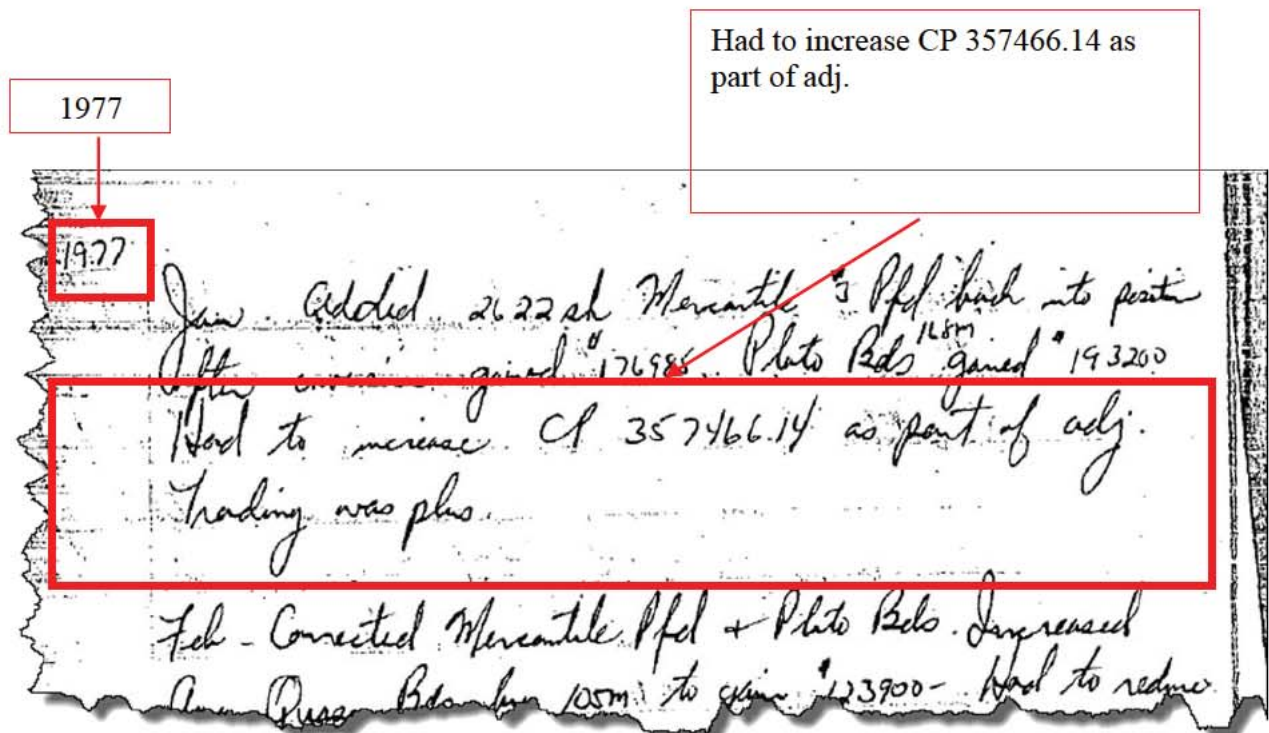 Had to increase CP 357466.14 as
part of adj.
1977
1977
Jan. Added 2622 sh Mercantile $ Pfd back into position
After gained $17698 Pluto Bds 168m gained $193200
Had to increase CP 357466.14 as part of adj.
Trading was plus.
Feb - Corrected Mercantile Pfd + Pluto Bds. Increased
Bds by 105m to gain $123900- Had to reduce